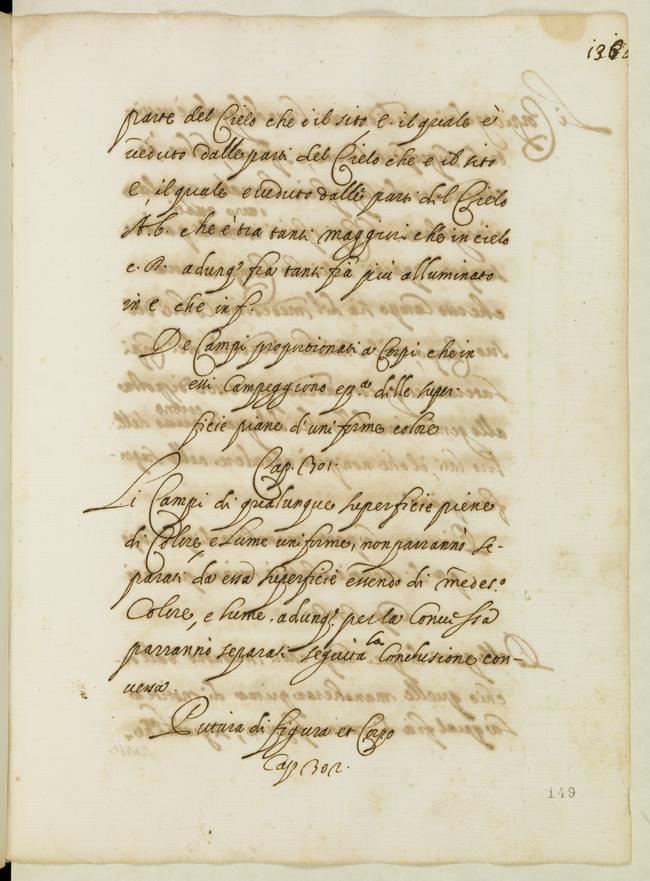 136
parte del Cielo che è il sito e. il quale è
ueduto dalle parti del Cielo che e il sito
e, il quale e ueduto dalle parti del Cielo
A.b. che è tra tanti maggiori che in cielo
c.B. adunq. fra tanti fia più alluminato
in e che in f.
De Campi proportionati a Corpi che in
essi Campeggiono e delle super-
ficie piane d'uniforme colore
Cap. 301.
Li Campi di qualunque superficie piene
di Colore, e lume uniforme, non parranno se-
parati da essa superficie essendo di medes.o
Colore, e lume. adunq. per la
parranno separati seguita la Conclusione con-
uersa.
Pittura di figura et Corpo
Cap. 302.
149